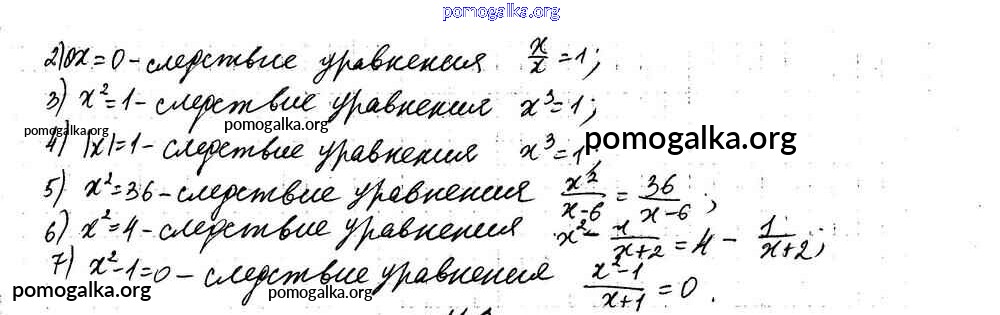 pomogalka.org
2) 0x=0 - следствие уравнения x/x = 1;
3) x²=1 - следствие уравнения x³=1;
pomogalka.org pomogalka.org pomogalka.org
4) |x|=1 - следствие уравнения x³=1;
5) x²=36 - следствие уравнения x²/(x-6) = 36/(x-6);
6) x²=4 - следствие уравнения x² - 1/(x+2) = 4 - 1/(x+2);
7) x²-1=0 - следствие уравнения (x²-1)/(x+1) = 0.
pomogalka.org pomogalka.org